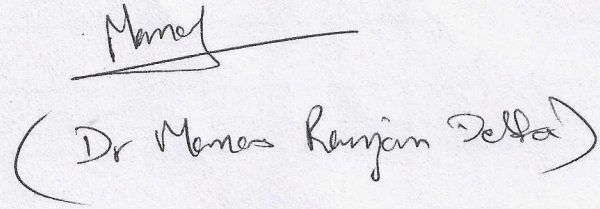 Manas
(Dr Manas Ranjan Dutta)